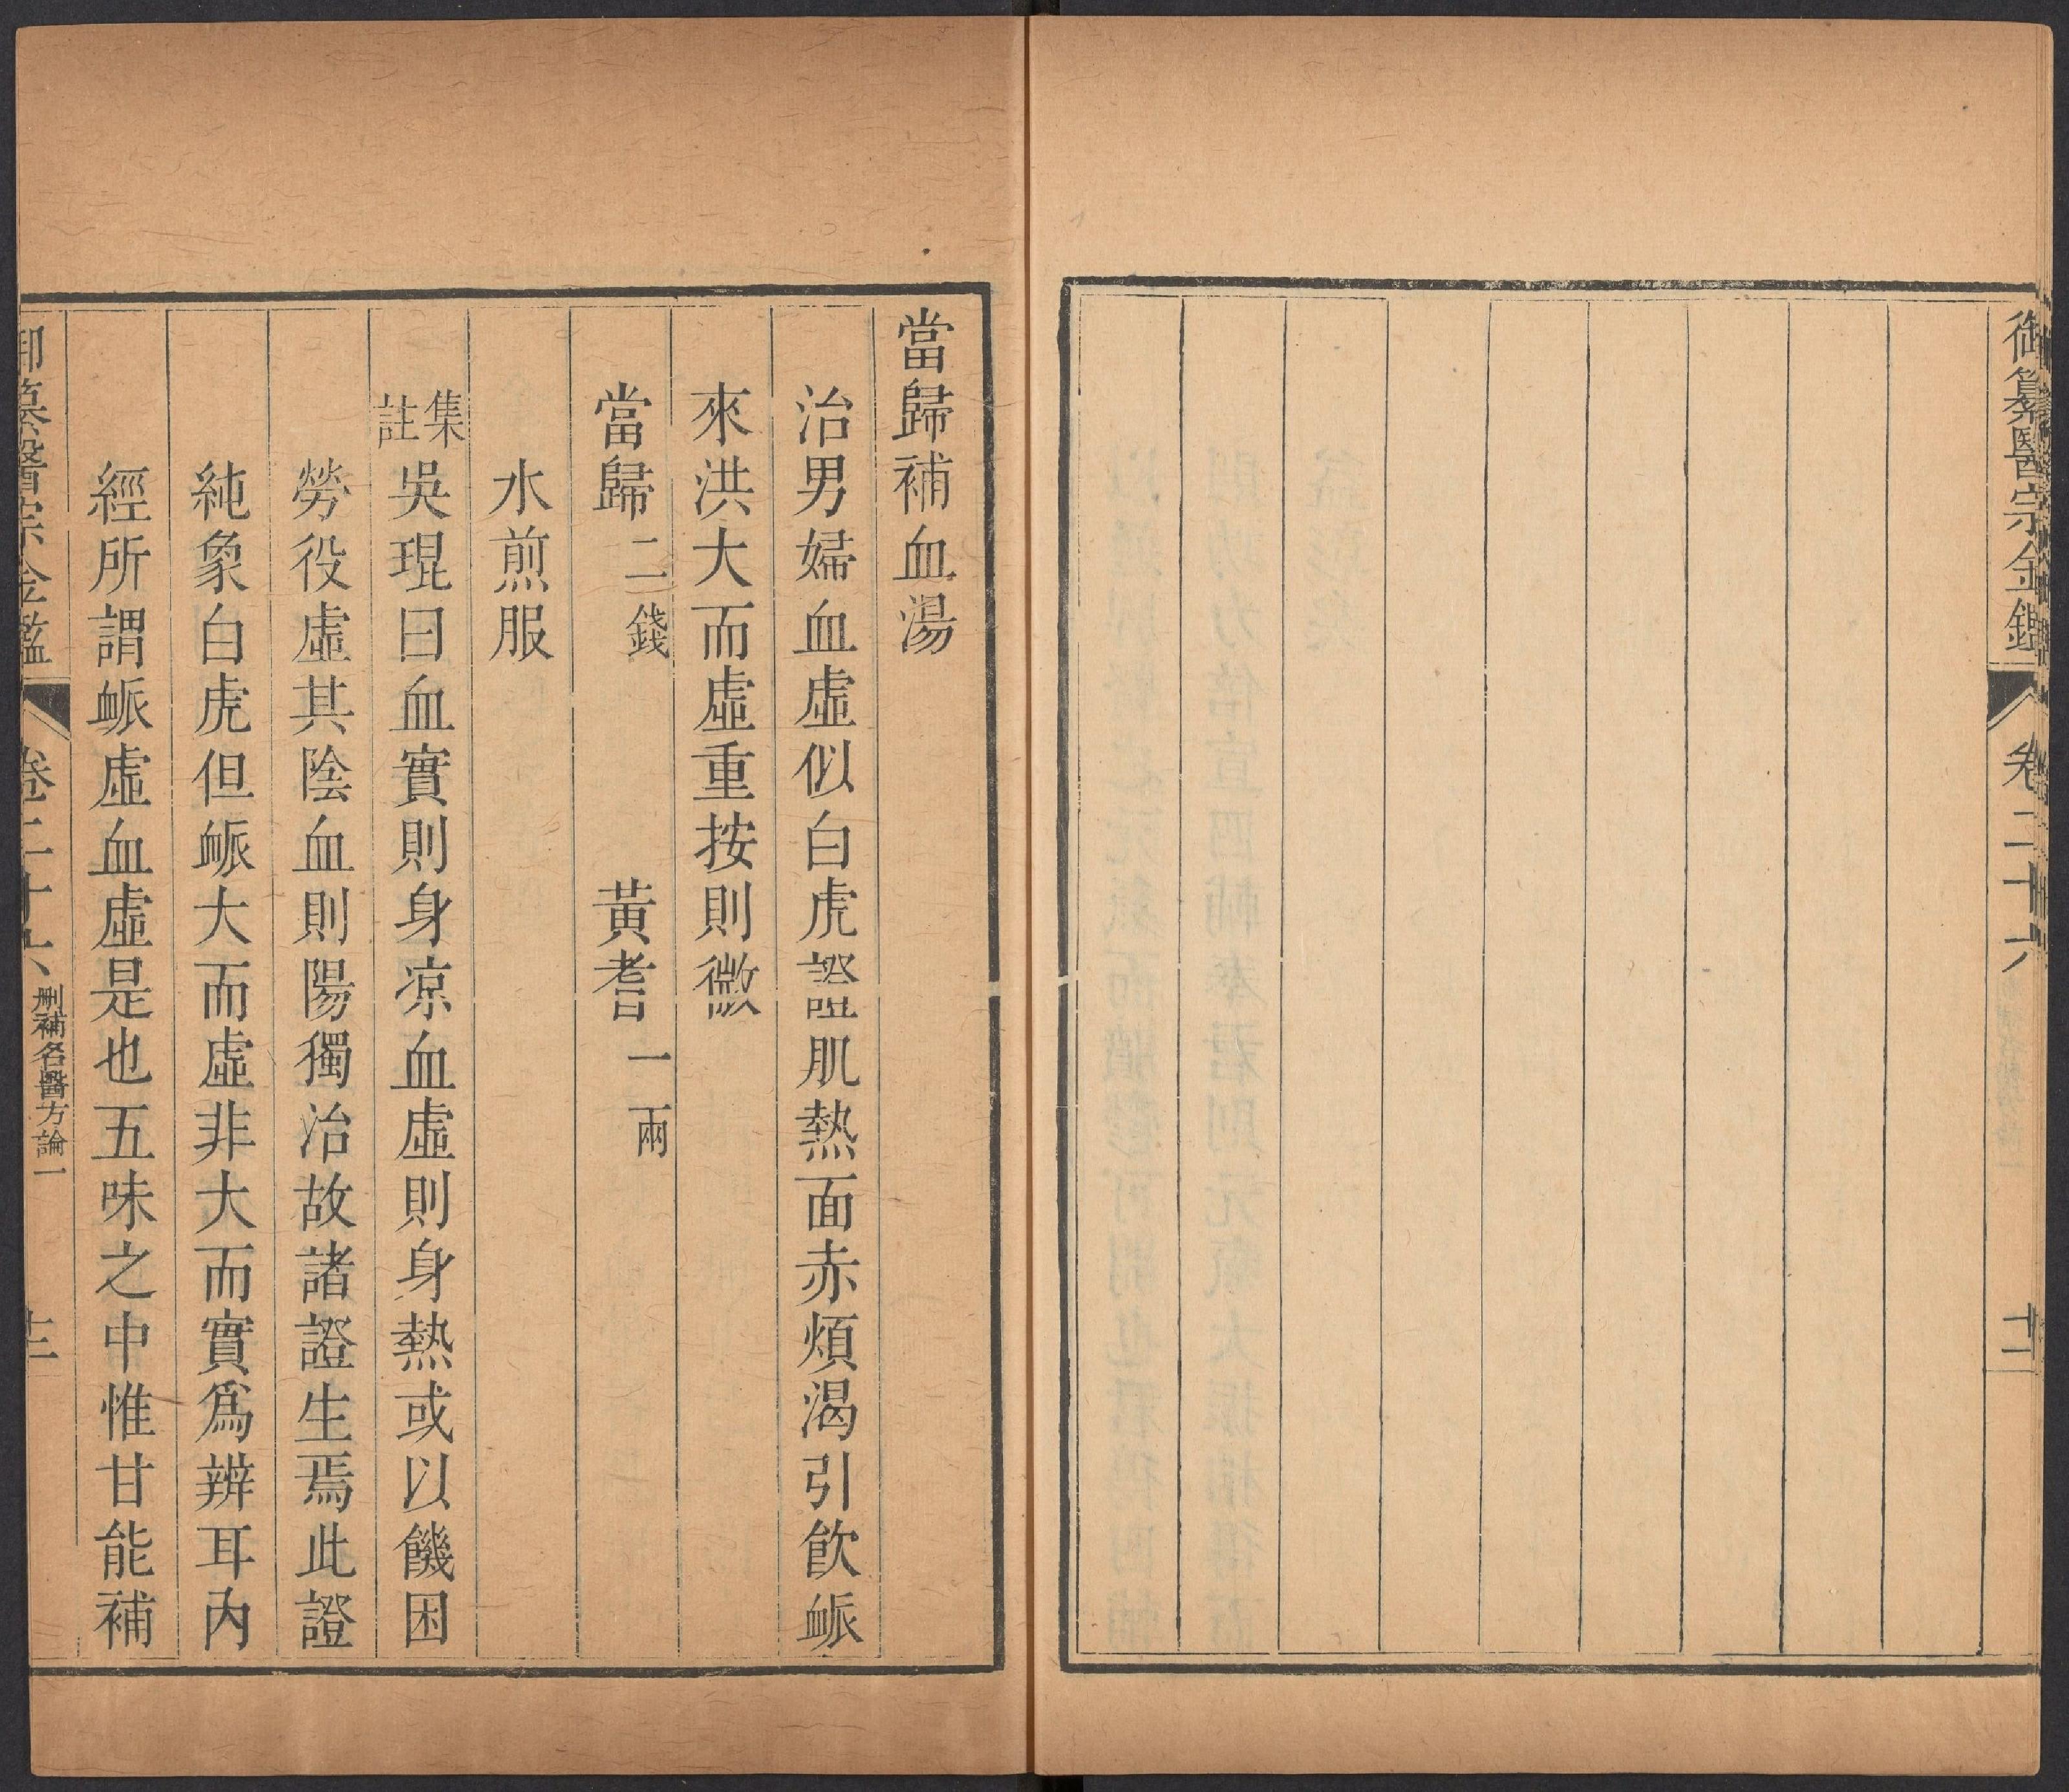 御纂醫宗金鑑 卷二十六 十二
當歸補血湯
治男婦血虛似白虎證肌熱面赤煩渴引飲衇
來洪大而虛重按則微
當歸二錢 黃耆一兩
水煎服
集註吳琨曰血實則身凉血虛則身熱或以饑困
勞役虛其陰血則陽獨治故諸證生焉此證
純象白虎但衇大而虛非大而實爲辨耳內
經所謂衇虛血虛是也五味之中惟甘能補
御纂醫宗金鑑 卷二十六 刪補名醫方論一 十三